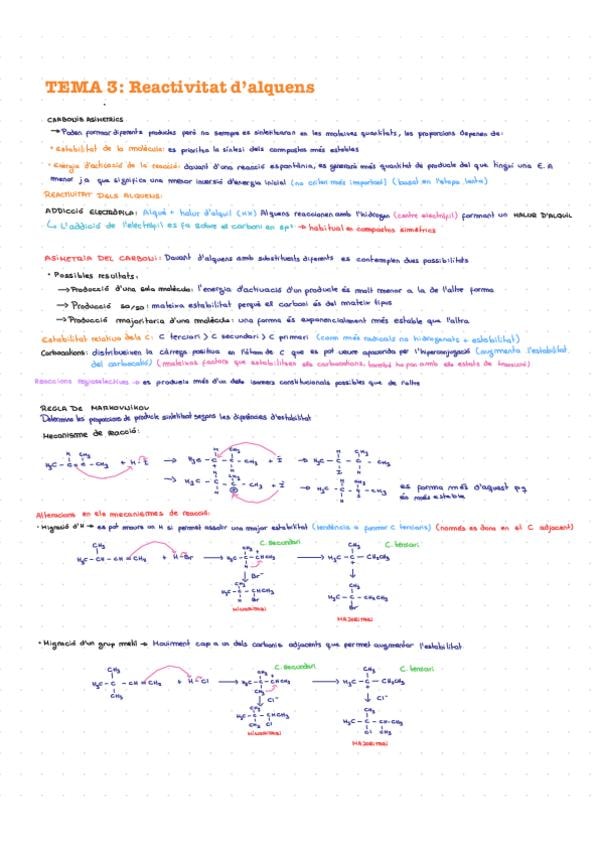 TEMA 3: Reactivitat d'alquens
CARBONIS ASIMETRICS
→ Poden formar diferents productes però no sempre es sintetitzaran en les mateixes quantitats, les proporcions depenen de:
• Estabilitat de la molècula: es prioritza la síntesi dels compostos més estables
• Energia d'activació de la reacció: davant d'una reacció espontània, es generarà més quantitat de producte del que tingui una E.A
menor ja que significa una menor inversió d'energia inicial (no criteri més important) (basat en l'etapa lenta)
REACTIVITAT DELS ALQUENS:
ADDICCIÓ ELECTRÒFILA: Alquè + halur d'alquil (HX) Alquens reaccionen amb l'hidrogen (centre electròfil) formant un HALUR D'ALQUIL
↳ L'addició de l'electròfil es fa sobre el carboni en sp² → habitual en compostos simètrics
ASIMETRIA DEL CARBONI: Davant d'alquens amb substituents diferents es contemplen dues possibilitats
• Possibles resultats:
→ Producció d'una sola molècula: l'energia d'activació d'un producte és molt menor a la de l'altre forma
→ Producció 50/50: mateixa estabilitat perquè el carboni és del mateix tipus
→ Producció majoritaria d'una molècula: una forma és exponencialment més estable que l'altra
Estabilitat relativa dels C: C terciari > C secundari > C primari (com més radicals no hidrogenats + estabilitat)
Carbocations: distribueixen la càrrega positiva en l'àtom de C que es pot veure afavorida per l'hiperconjugació (augmenta l'estabilitat
del carbocatió) (mateixos factors que estabilitzen els carbocations, també ho fan amb els estats de transició)
Reaccions regioselectives → es produeix més d'un dels isòmers constitucionals possibles que de l'altre
REGLA DE MARKOVNIKOV
Determina les proporcions de producte sintetitzat segons les diferències d'estabilitat
Mecanisme de reacció:
es forma més d'aquest pq
és més estable
Alteracions en els mecanismes de reacció:
• Migració d'H → es pot moure un H si permet assolir una major estabilitat (tendència a formar C terciaris) (només es dona en el C adjacent)
C. secundari
C. terciari
Br⁻
MINORITARI
MAJORITARI
• Migració d'un grup metil → Moviment cap a un dels carbonis adjacents que permet augmentar l'estabilitat
C. secundari
C. terciari
Cl⁻
Cl⁻
MINORITARI
MAJORITARI